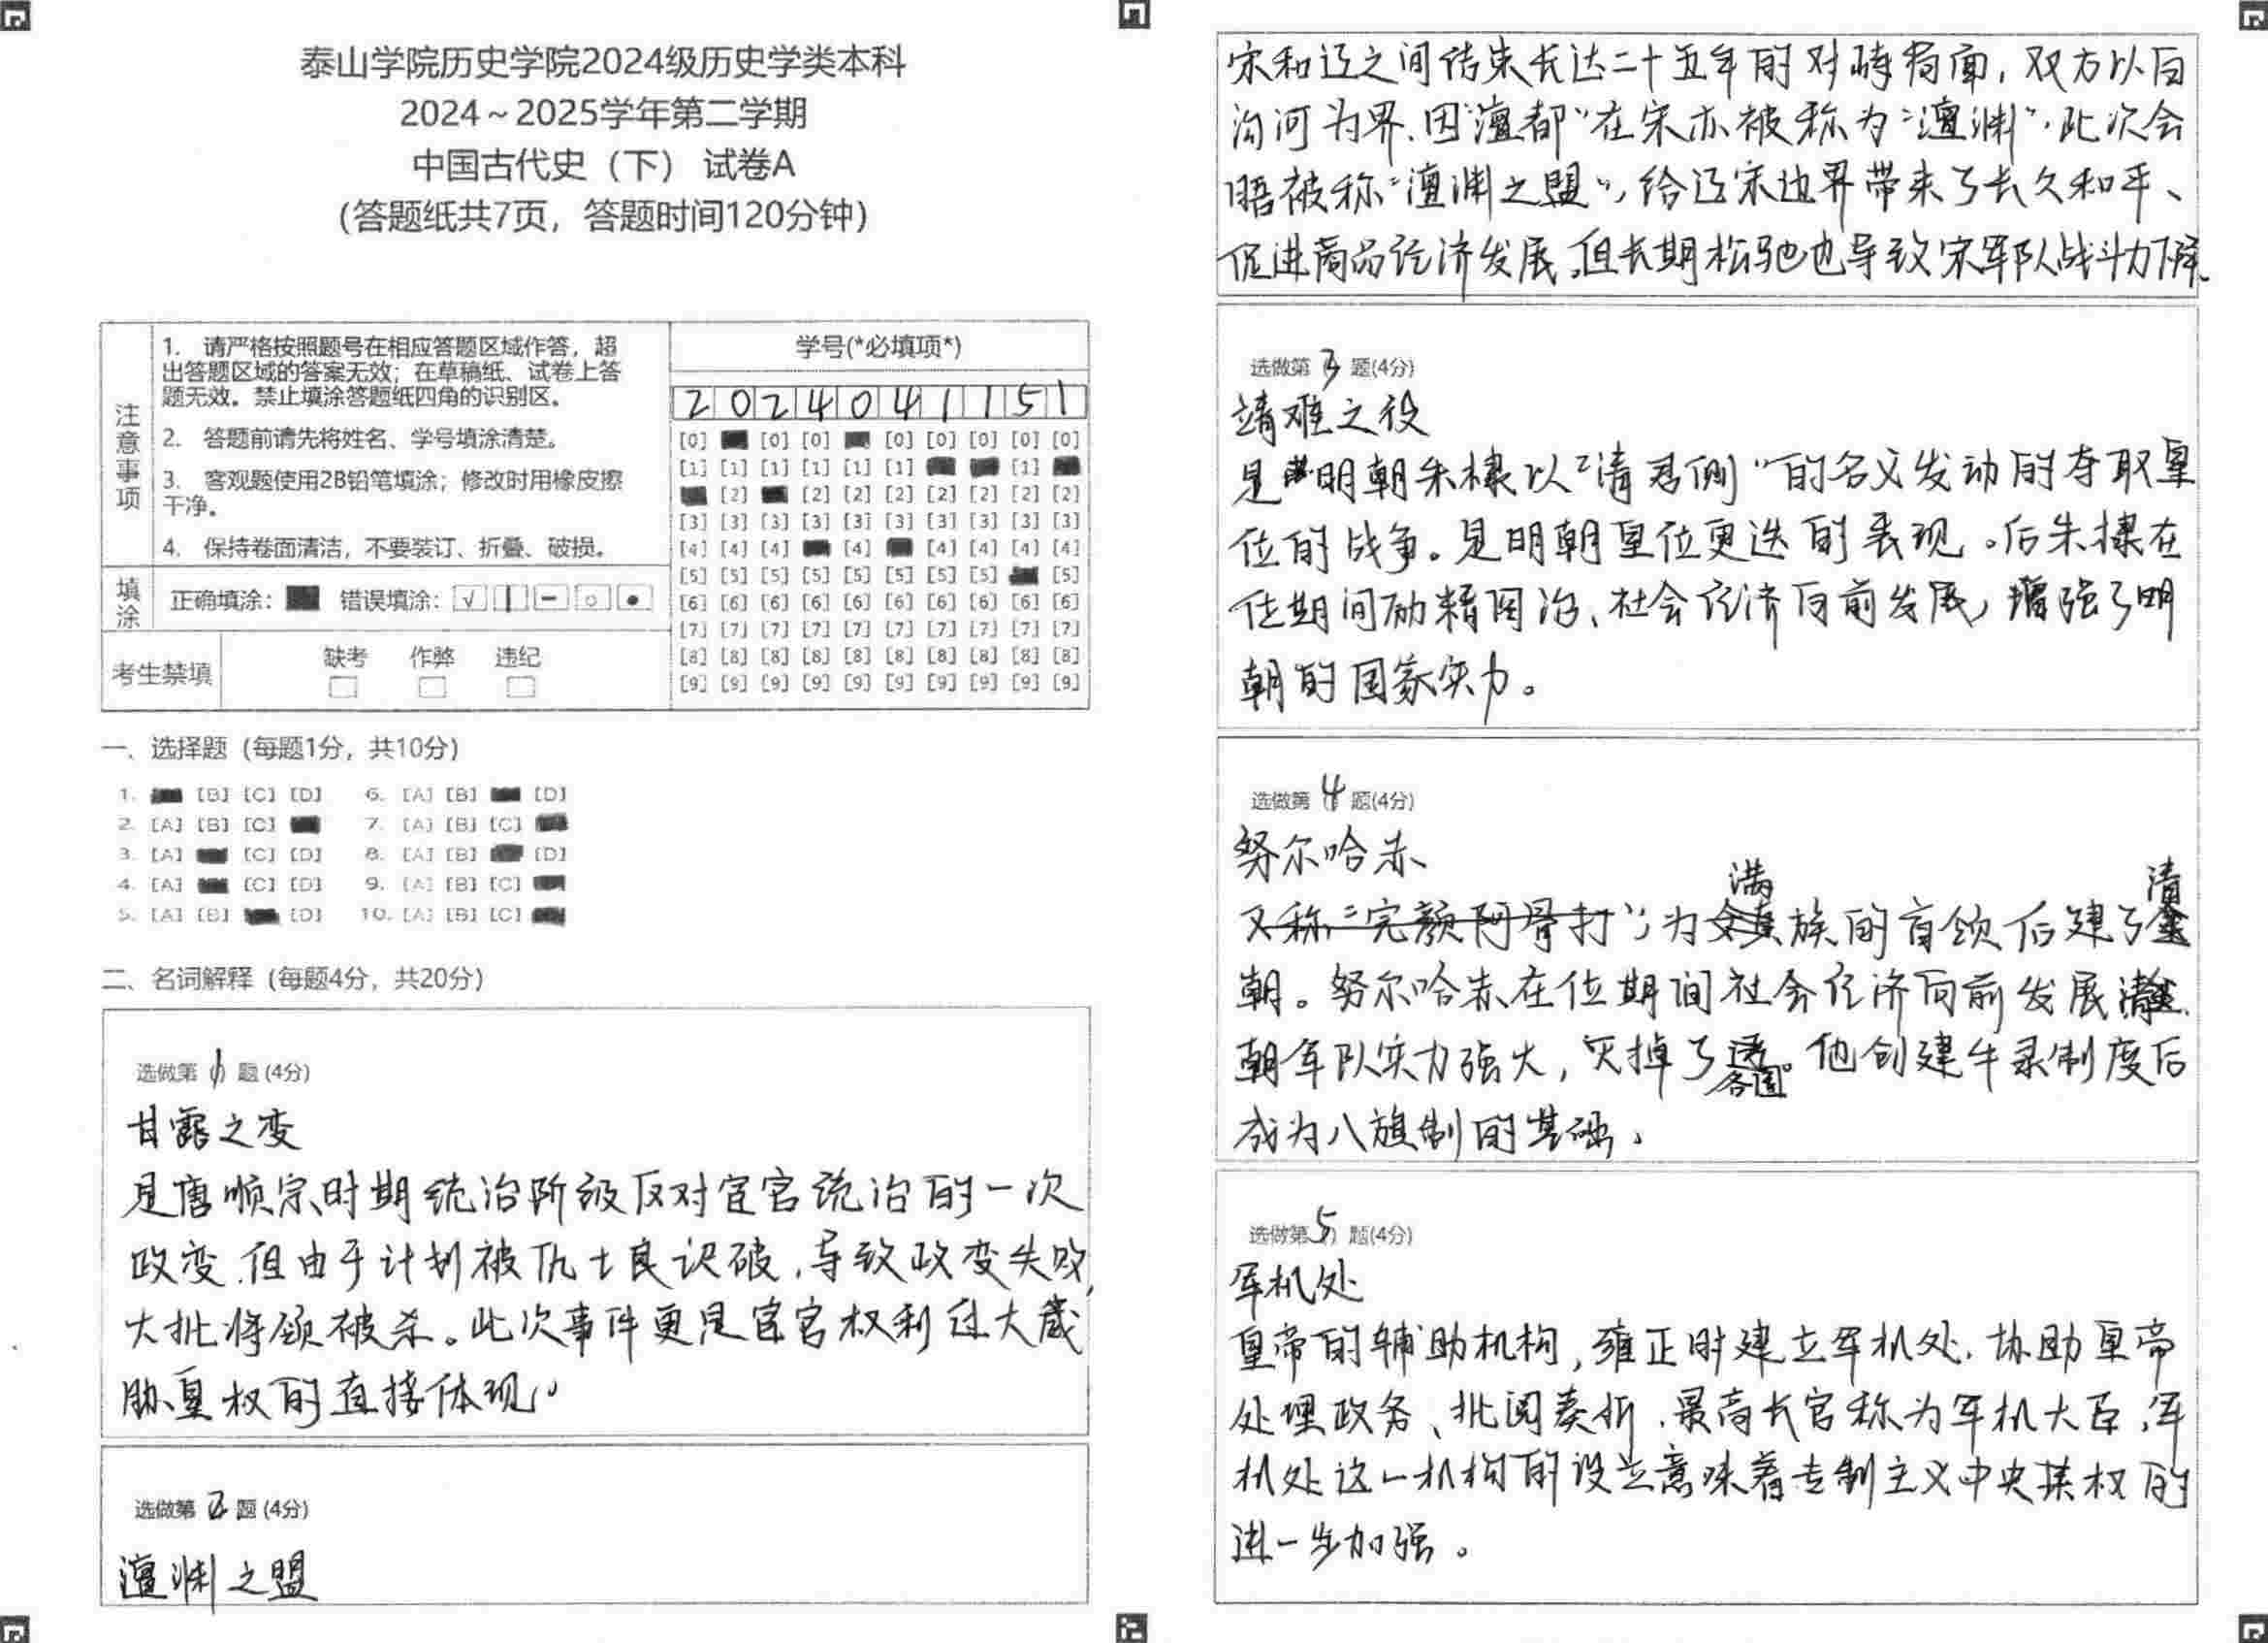 泰山学院历史学院2024级历史学类本科
2024～2025学年第二学期
中国古代史（下） 试卷A
（答题纸共7页，答题时间120分钟）
注意事项
1. 请严格按照题号在相应答题区域作答，超
出答题区域的答案无效；在草稿纸、试卷上答
题无效。禁止填涂答题纸四角的识别区。
2. 答题前请先将姓名、学号填涂清楚。
3. 客观题使用2B铅笔填涂；修改时用橡皮擦
干净。
4. 保持卷面清洁，不要装订、折叠、破损。
填涂
正确填涂： 错误填涂：
考生禁填
缺考 作弊 违纪
学号(*必填项*)
2 0 2 4 0 4 1 1 5 1
[0] [0] [0] [0] [0] [0] [0] [0]
[1] [1] [1] [1] [1] [1] [1]
[2] [2] [2] [2] [2] [2] [2] [2]
[3] [3] [3] [3] [3] [3] [3] [3] [3] [3]
[4] [4] [4] [4] [4] [4] [4] [4]
[5] [5] [5] [5] [5] [5] [5] [5] [5]
[6] [6] [6] [6] [6] [6] [6] [6] [6] [6]
[7] [7] [7] [7] [7] [7] [7] [7] [7] [7]
[8] [8] [8] [8] [8] [8] [8] [8] [8] [8]
[9] [9] [9] [9] [9] [9] [9] [9] [9] [9]
一、选择题（每题1分，共10分）
1. [B] [C] [D] 6. [A] [B] [D]
2. [A] [B] [C] 7. [A] [B] [C]
3. [A] [C] [D] 8. [A] [B] [D]
4. [A] [C] [D] 9. [A] [B] [C]
5. [A] [B] [D] 10. [A] [B] [C]
二、名词解释（每题4分，共20分）
选做第 1 题 (4分)
甘露之变
是唐顺宗时期统治阶级反对宦官统治的一次
政变，但由于计划被仇士良识破，导致政变失败，
大批将领被杀。此次事件更是宦官权利过大威
胁皇权的直接体现。
选做第 2 题 (4分)
澶渊之盟
宋和辽之间结束长达二十五年的对峙局面，双方以白
沟河为界，因“澶都”在宋亦被称为“澶渊”，此次会
晤被称“澶渊之盟”，给辽宋边界带来了长久和平、
促进商品经济发展，但长期松驰也导致宋军队战斗力下降。
选做第 3 题(4分)
靖难之役
是明朝朱棣以“清君侧”的名义发动的夺取皇
位的战争。是明朝皇位更迭的表现。后朱棣在
位期间励精图治、社会经济向前发展，增强了明
朝的国家实力。
选做第 4 题(4分)
努尔哈赤
又称“完颜阿骨打”，为满族的首领后建了清
朝。努尔哈赤在位期间社会经济向前发展，清
朝军队实力强大，灭掉了各国。他创建牛录制度后
成为八旗制的基础。
选做第 5 题(4分)
军机处
皇帝的辅助机构，雍正时建立军机处，协助皇帝
处理政务、批阅奏折，最高长官称为军机大臣，军
机处这一机构的设立意味着专制主义中央集权的
进一步加强。